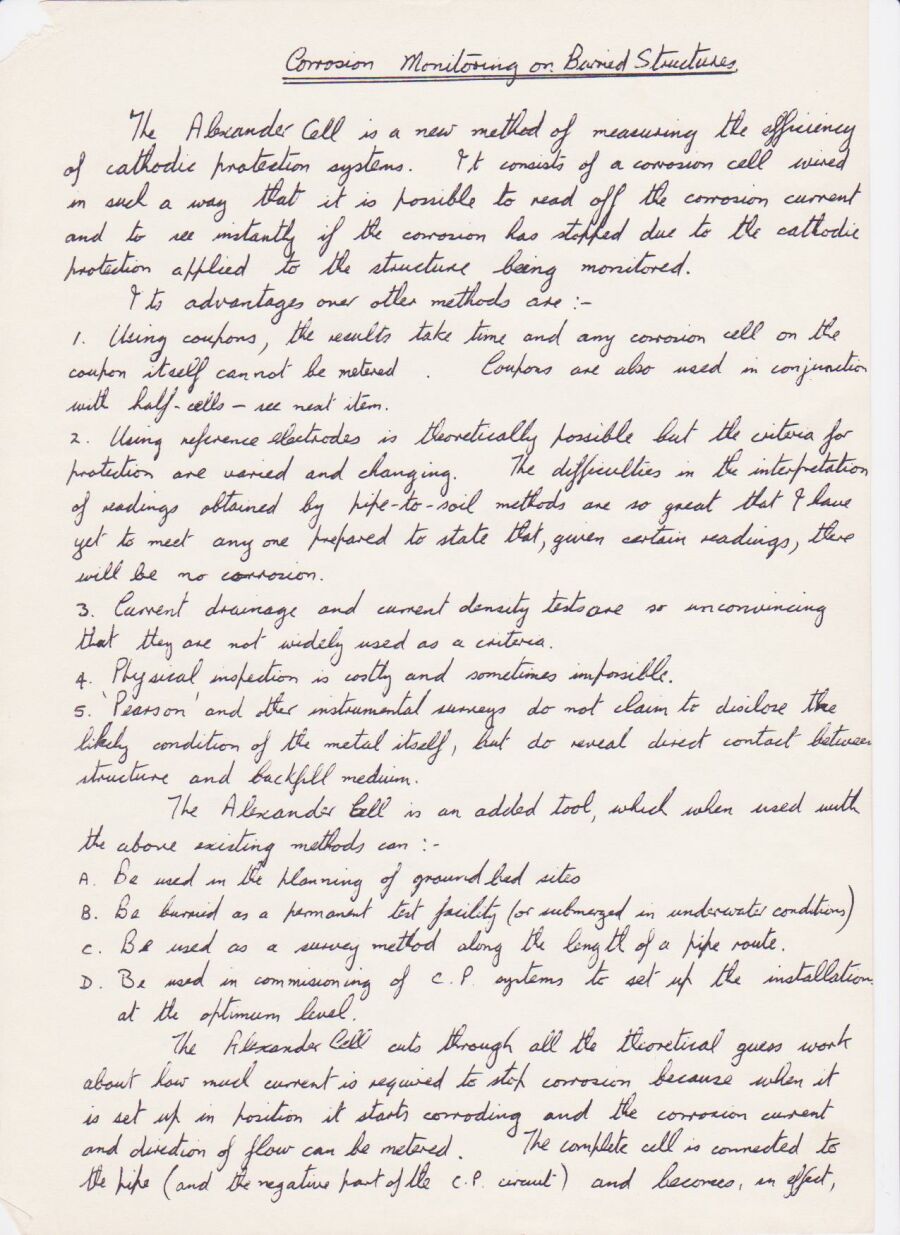 Corrosion Monitoring on Buried Structures.
The Alexander Cell is a new method of measuring the efficiency
of cathodic protection systems. It consists of a corrosion cell wired
in such a way that it is possible to read off the corrosion current
and to see instantly if the corrosion has stopped due to the cathodic
protection applied to the structure being monitored.
Its advantages over other methods are :-
1. Using coupons, the results take time and any corrosion cell on the
coupon itself cannot be metered . Coupons are also used in conjunction
with half-cells - see next item.
2. Using reference electrodes is theoretically possible but the criteria for
protection are varied and changing. The difficulties in the interpretation
of readings obtained by pipe-to-soil methods are so great that I have
yet to meet any one prepared to state that, given certain readings, there
will be no corrosion.
3. Current drainage and current density tests are so unconvincing
that they are not widely used as a criteria.
4. Physical inspection is costly and sometimes impossible.
5. 'Pearson' and other instrumental surveys do not claim to disclose the
likely condition of the metal itself, but do reveal direct contact between
structure and backfill medium.
The Alexander Cell is an added tool, which when used with
the above existing methods can :-
A. Be used in the planning of ground bed sites
B. Be burried as a permanent test facility (or submerged in underwater conditions)
C. Be used as a survey method along the length of a pipe route.
D. Be used in commisioning of C.P. systems to set up the installation
at the optimum level.
The Alexander Cell cuts through all the theoretical guess work
about how much current is required to stop corrosion because when it
is set up in position it starts corroding and the corrosion current
and direction of flow can be metered. The complete cell is connected to
the pipe (and the negative part of the C.P. circuit) and becomes, in effect,